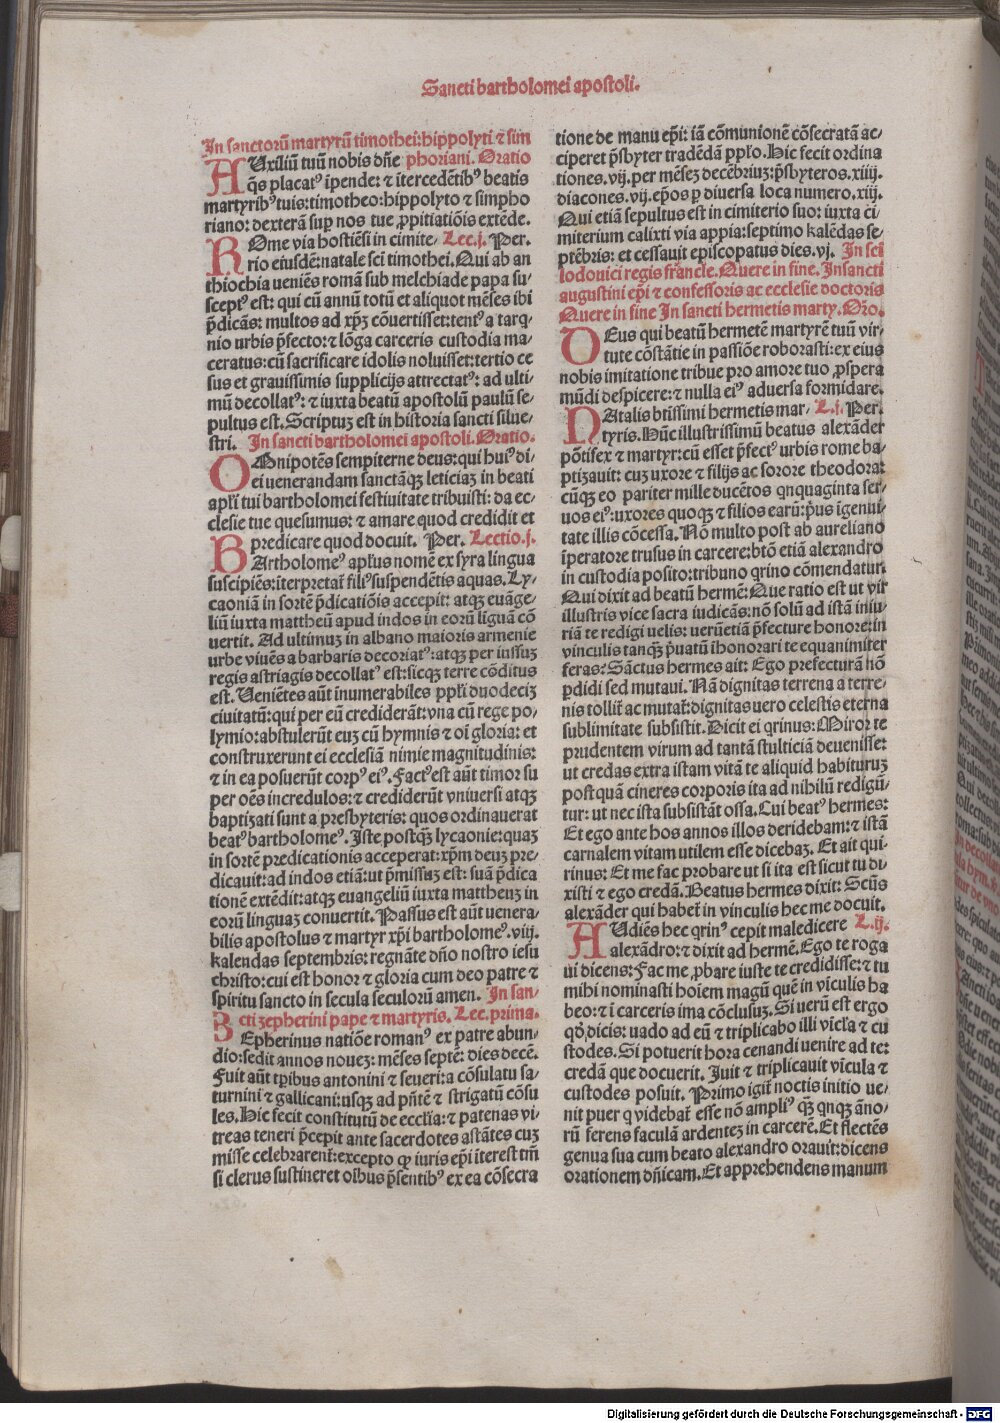 Sancti bartholomei apostoli.
In sanctorū martyrū timothei: hippolyti ⁊ sim
AUxiliū tuū nobis dn̄e phoriani. Oratio
q̄s placatꝰ īpende: ⁊ ītercedētibꝰ beatis
martyribꝰ tuis: timotheo: hippolyto ⁊ simpho
riano: dexterā suꝑ nos tue ꝓpitiatiōis extēde.
ROme via hostiēsi in cimite⸗ Lec.j. Per.
rio eiusdē: natale scī timothei. Qui ab an
thiochia ueniēs romā sub melchiade papa su⸗
sceptꝰ est: qui cū annū totū et aliquot mēses ibi
p̄dicās: multos ad xp̄ꝫ cōuertisset: tentꝰ a tarq⸗
nio urbis p̄fecto: ⁊ lōga carceris custodia ma⸗
ceratus: cū sacrificare idolis noluisset: tertio ce
sus et grauissimis supplicijs attrectatꝰ: ad ulti⸗
mū decollatꝰ: ⁊ iuxta beatū apostolū paulū se⸗
pultus est. Scriptuꝫ est in historia sancti silue⸗
stri. In sancti bartholomei apostoli. Oratio.
OMnipotēs sempiterne deus: qui huiꝰ di⸗
ei uenerandam sanctāqꝫ leticiaꝫ in beati
apl̄i tui bartholomei festiuitate tribuisti: da ec⸗
clesie tue quesumus: ⁊ amare quod credidit et
predicare quod docuit. Per. Lectio.j.
BArtholomeꝰ apl̄us nomē ex syra lingua
suscipiēs: īterpretat̄ filiꝰ suspendētis aquas. Ly⸗
caoniā in sortē p̄dicatiōis accepit: atqꝫ euāge⸗
liū iuxta mattheū apud indos in eorū liguā cō
uertit. Ad ultimuꝫ in albano maioris armenie
urbe viuēs a barbaris decoriatꝰ: atqꝫ per iussuꝫ
regis astriagis decollatꝰ est: sicqꝫ terre cōditus
est. Ueniētes aūt īnumerabiles ppl̄i duodeciꝫ
ciuitatū: qui per eū crediderāt: vna cū rege po⸗
lymio: abstulerūt euꝫ cū hymnis ⁊ oī gloria: et
construxerunt ei ecclesiā nimie magnitudinis:
⁊ in ea posuerūt corpꝰ eiꝰ. Factꝰ est aūt timor su
per oēs incredulos: ⁊ crediderūt vniuersi atqꝫ
baptizati sunt a presbyteris: quos ordinauerat
beatꝰ bartholomeꝰ. Iste postqꝫ lycaonie: quaꝫ
in sortē predicationis acceperat: xp̄m deuꝫ pre⸗
dicauit: ad indos etiā: ut p̄missuꝫ est: suā p̄dica
tionē extēdit: atqꝫ euangeliū iuxta mattheuꝫ in
eorū linguaꝫ conuertit. Passus est aūt uenera⸗
bilis apostolus ⁊ martyr xp̄i bartholomeꝰ. viij.
kalendas septembris: regnāte dn̄o nostro iesu
christo: cui est honor ⁊ gloria cum deo patre ⁊
spiritu sancto in secula seculorū amen. In san⸗
cti zepherini pape ⁊ martyris. Lec. prima.
ZEpherinus natiōe romanꝰ ex patre abun⸗
dio: sedit annos noueꝫ: mēses septē: dies decē.
Fuit aūt tp̄ibus antonini ⁊ seueri: a cōsulatu sa⸗
turnini ⁊ gallicani: usqꝫ ad pn̄tē ⁊ strigatū cōsu
les. Hic fecit constitutū de eccl̄ia: ⁊ patenas vi⸗
treas teneri p̄cepit ante sacerdotes astātes cuꝫ
misse celebrarent̄: excepto qꝑ iuris ep̄i īterest tm̄
si clerus sustineret oībus p̄sentibꝰ ex ea cōsecra
tione de manu ep̄i: iā cōmunionē cōsecratā ac⸗
ciperet p̄sbyter tradēdā ppl̄o. Hic fecit ordina
tiones. vij. per mēseꝫ decēbriuꝫ: p̄sbyteros. xiiij.
diacones. vij. ep̄os ꝑ diuersa loca numero. xiij.
Qui etiā sepultus est in cimiterio suo: iuxta ci⸗
miterium calixti via appia: septimo kalēdas se⸗
ptēbris: et cessauit episcopatus dies. vj. In scī
lodouici regis frācie. Quere in fine. In sancti
augustini ep̄i ⁊ confessoris ac ecclesie doctoris
Quere in fine In sancti hermetis marty. Or̄o.
DEus qui beatū hermetē martyrē tuū vir⸗
tute cōstātie in passiōe roborasti: ex eius
nobis imitatione tribue pro amore tuo ꝓspera
mūdi despicere: ⁊ nulla eiꝰ aduersa formidare.
NAtalis btīssimi hermetis mar⸗ L.j. Per.
tyris. Hūc illustrissimū beatus alexāder
pōtifex ⁊ martyr: cū esset p̄fectꝰ urbis rome ba⸗
ptizauit: cuꝫ uxore ⁊ filijs ac sorore theodora:
cūqꝫ eo pariter mille ducētos qnquaginta ser⸗
uos eiꝰ: uxores quoqꝫ ⁊ filios earū: p̄us īgenui⸗
tate illis cōcessa. Nō multo post ab aureliano
īperatore trusus in carcere: btō etiā alexandro
in custodia posito: tribuno qrino cōmendatur.
Qui dixit ad beatū hermē: Que ratio est ut vir
illustris vice sacra iudicās: nō solū ad istā iniu⸗
riā te redigi uelis: uerūetiā p̄fecture honore: in
vinculis tanqꝫ p̄uatū īhonorari te equanimiter
feras? Sāctus hermes ait: Ego prefecturā nō
ꝑdidi sed mutaui. Nā dignitas terrena a terre⸗
nis tollit̄ ac mutat̄: dignitas uero celestis eterna
sublimitate subsistit. Dicit ei qrinus: Miror te
prudentem virum ad tantā stulticiā deuenisse:
ut credas extra istam vitā te aliquid habituruꝫ
postquā cineres corporis ita ad nihilū redigū⸗
tur: ut nec ista subsistāt ossa. Cui beatꝰ hermes:
Et ego ante hos annos illos deridebam: ⁊ istā
carnalem vitam utilem esse dicebaꝫ. Et ait qui⸗
rinus: Et me fac probare ut si ita est sicut tu di
xisti ⁊ ego credā. Beatus hermes dixit: Scūs
alexāder qui habet̄ in vinculis hec me docuit.
AUdiēs hec qrinꝰ cepit maledicere L.ij.
alexādro: ⁊ dixit ad hermē. Ego te roga
ui dicens: Fac me ꝓbare iuste te credidisse: ⁊ tu
mihi nominasti hoīem magū quē in vīculis ha
beo: ⁊ ī carceris ima cōclusuꝫ. Si uerū est ergo
qd̓ dicis: uado ad eū ⁊ triplicabo illi vīcl̄a ⁊ cu
stodes. Si potuerit hora cenandi uenire ad te:
credā que docuerit. Iuit ⁊ triplicauit vīcula ⁊
custodes posuit. Primo igit̄ noctis initio ue⸗
nit puer q videbat̄ esse nō ampliꝰ qꝫ qnqꝫ āno⸗
rū ferens faculā ardenteꝫ in carcerē. Et flectēs
genua sua cum beato alexandro orauit: dicens
orationem dn̄icam. Et apprehendens manum
Digitalisierung gefördert durch die Deutsche Forschungsgemeinschaft - DFG